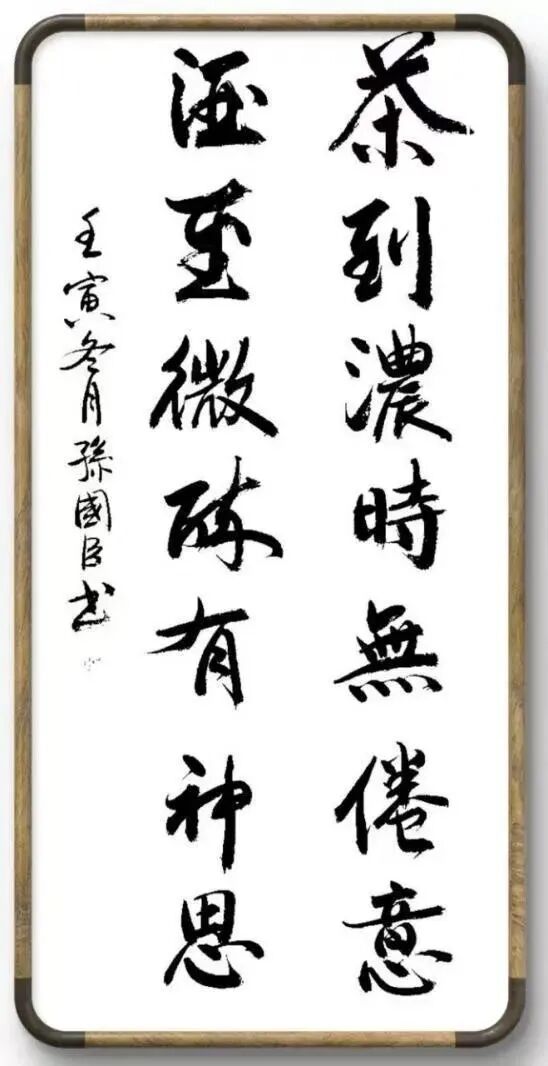 茶到濃時無倦意
酒至微酔有神思
壬寅冬月孫國臣书